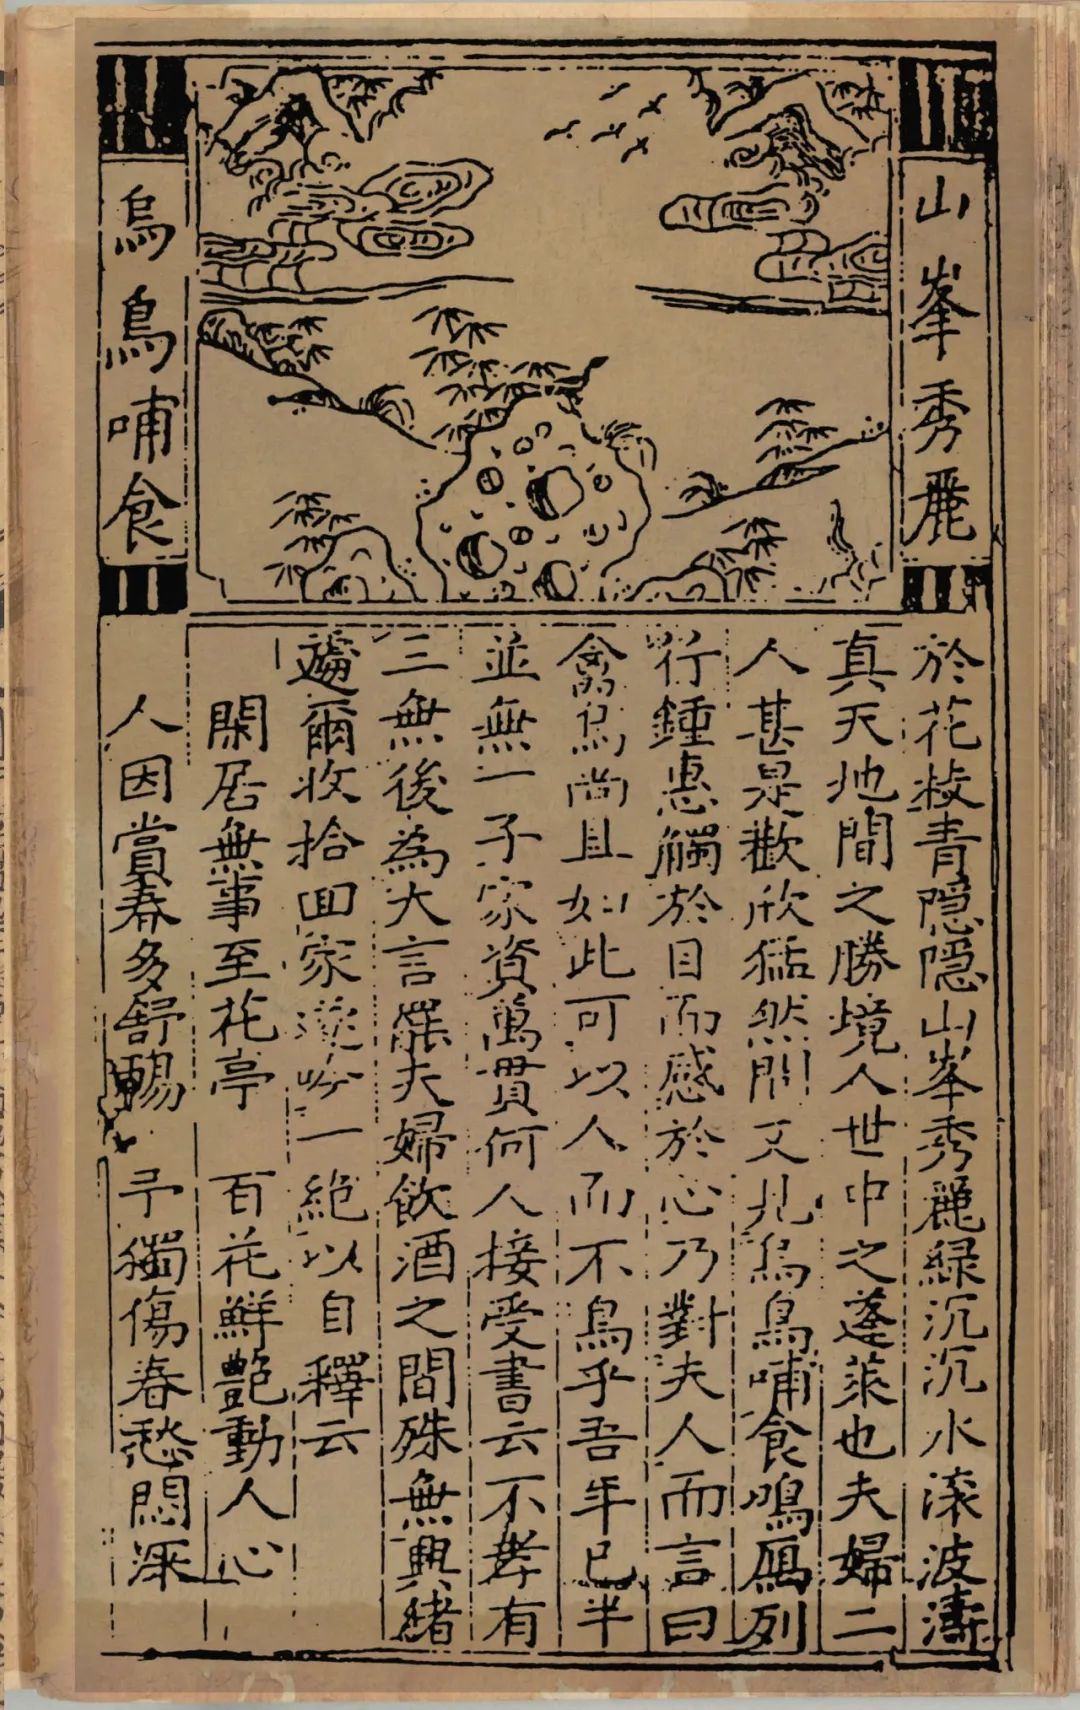 山峯秀麗
烏鳥哺食
於花枝青隠隠山峯秀麗緑沉沉水滚波濤
真天地間之勝境人世中之蓬萊也夫婦二
人甚是歡欣猛然間又見烏鳥哺食鳴鴈列
行鍾惠觸於目而感於心乃對夫人而言曰
禽鳥尚且如此可以人而不鳥乎吾年已半
並無一子家資萬貫何人接受書云不孝有
三無後為大言罷夫婦飲酒之間殊無興緒
遽爾收拾回家遂吟一絶以自釋云
閑居無事至花亭 百花鮮艶動人心
人因賞春多舒暢 予獨傷春愁悶深